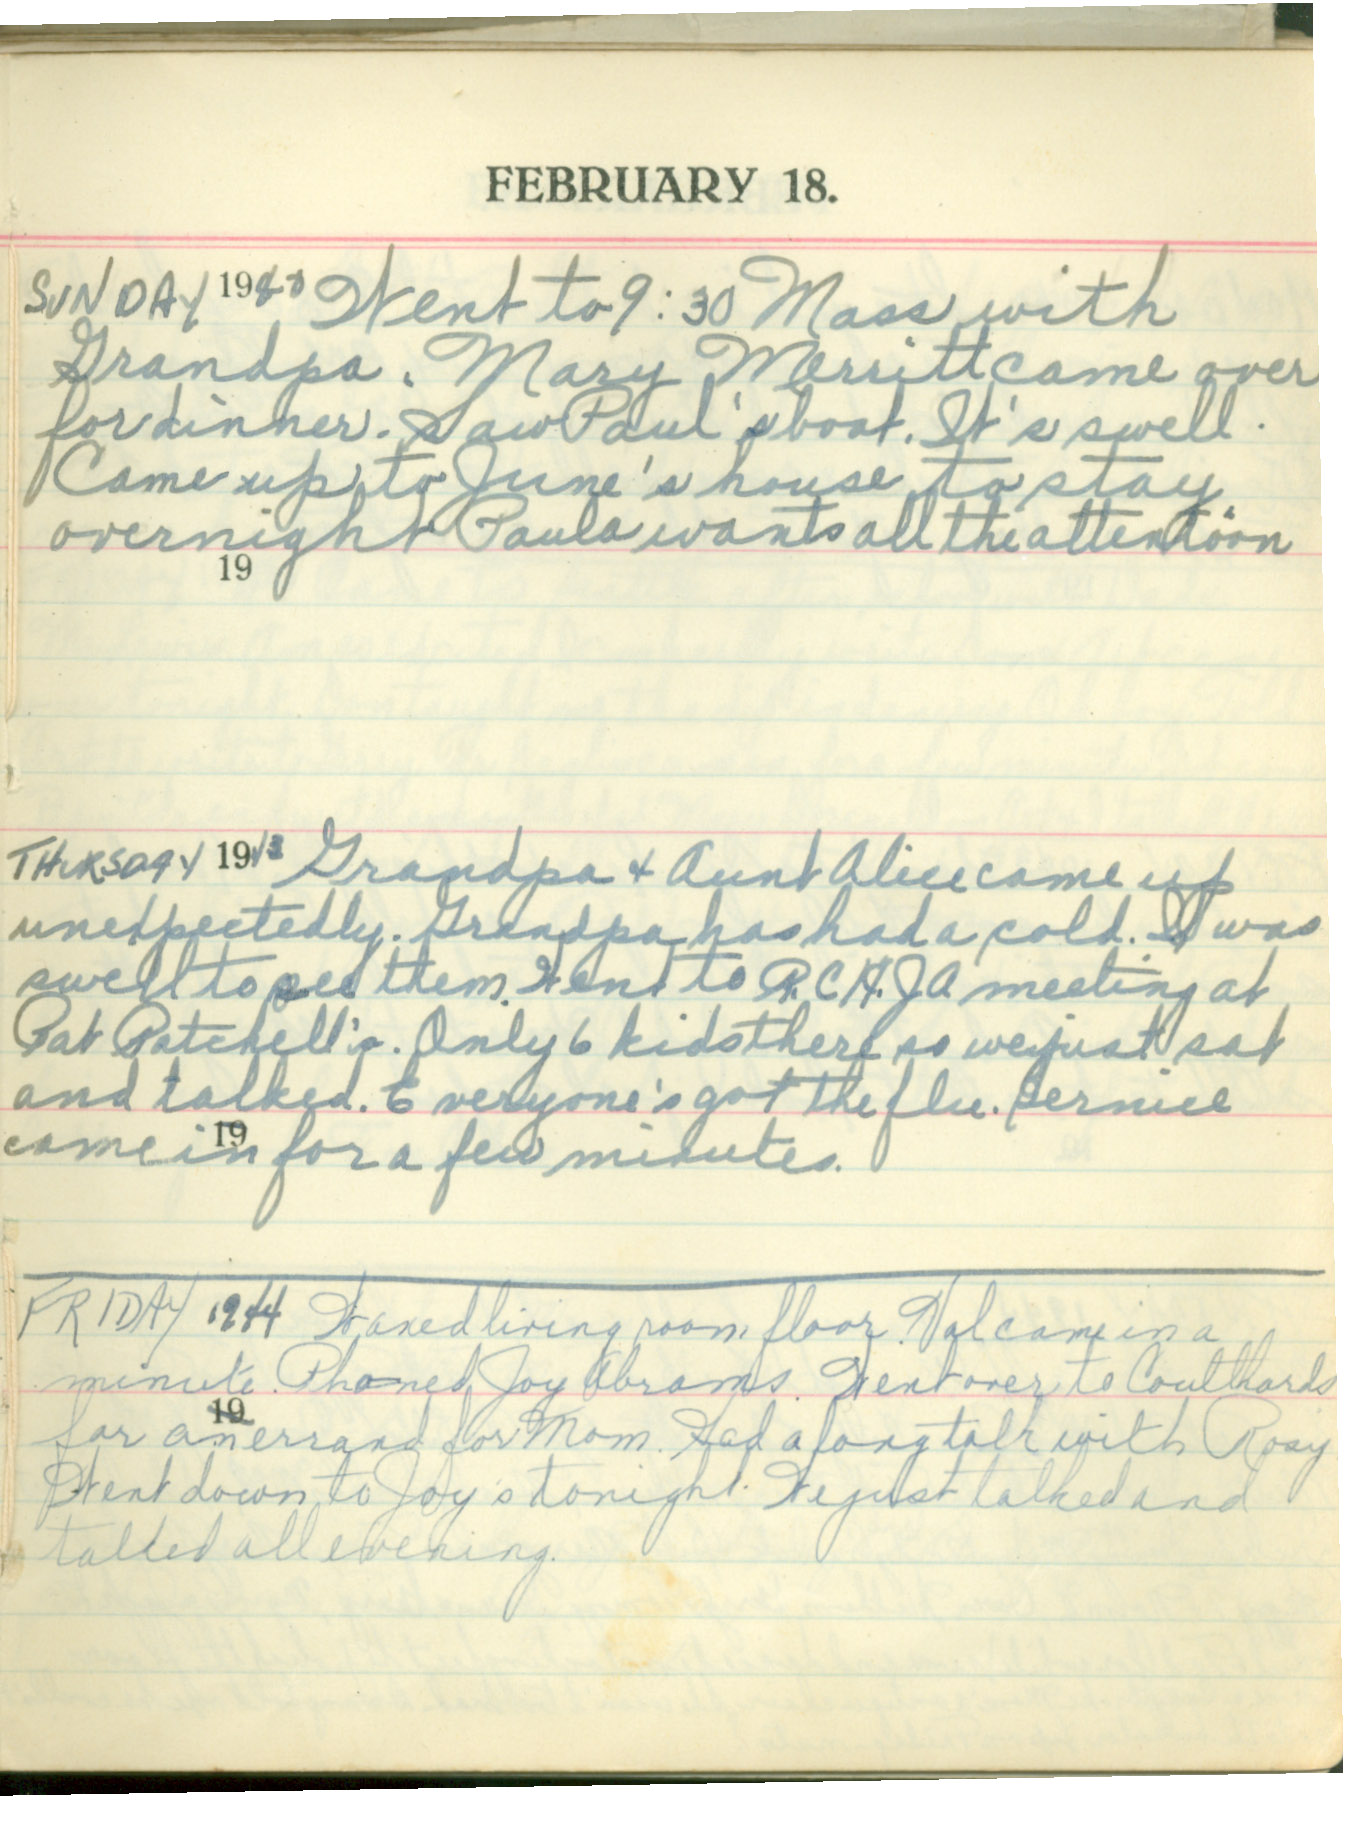 FEBRUARY 18.
SUNDAY 1940 Went to 9:30 Mass with
Grandpa. Mary Merritt came over
for dinner. Saw Paul's boat. It's swell.
Came up to June's house to stay
overnight Paula wants all the attention
19
THURSDAY 1943 Grandpa + Aunt Alice came up
unexpectedly. Grandpa has had a cold. It was
swell to see them. Went to R.C.H.JA meeting at
Pat Patchell's. Only 6 kids there so we just sat
and talked. Everyone's got the flu. Bernice
19
came in for a few minutes.
FRIDAY 1944 Waxed living room floor. Val came in a
minute. Phoned Joy Abrams. Went over to Coulthards
19
for an errand for Mom. Had a long talk with Rosy
Went down to Joy's tonight. We just talked and
talked all evening.